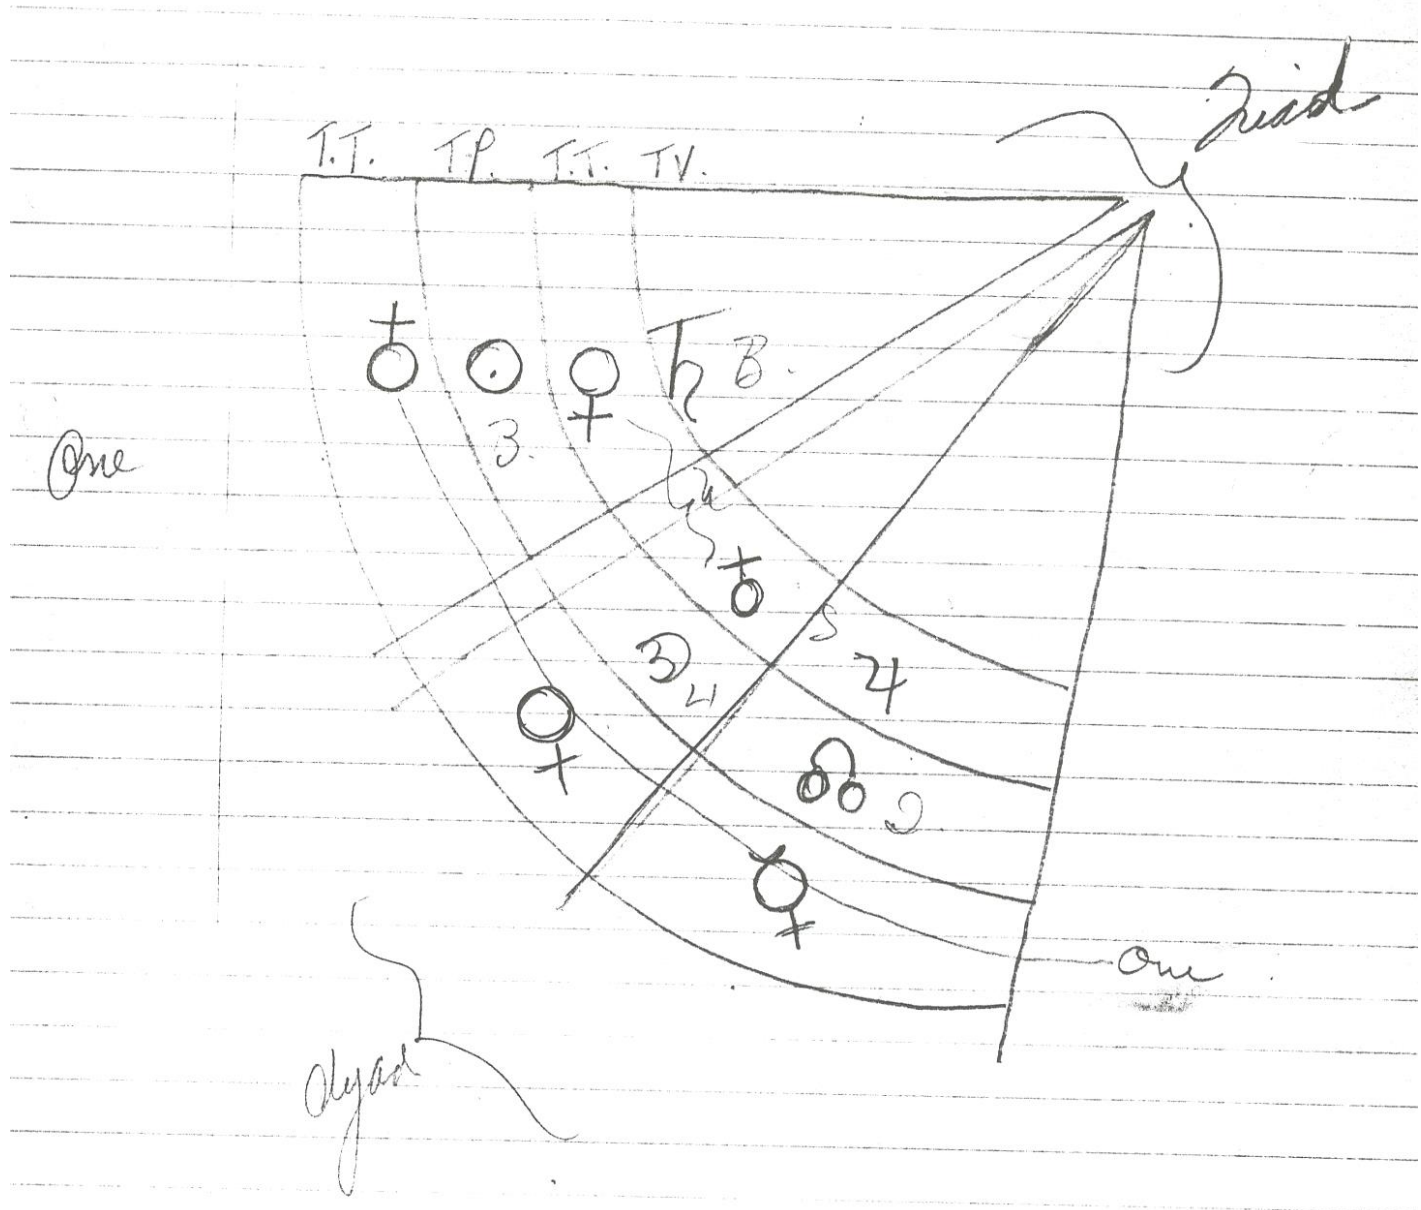 Triad
T.T. T.P. T.T. T.V.
♁ ☉ ♀ ♄ B.
3.
One
4
♁
S
♃
♀
☊
☿
One
dyad